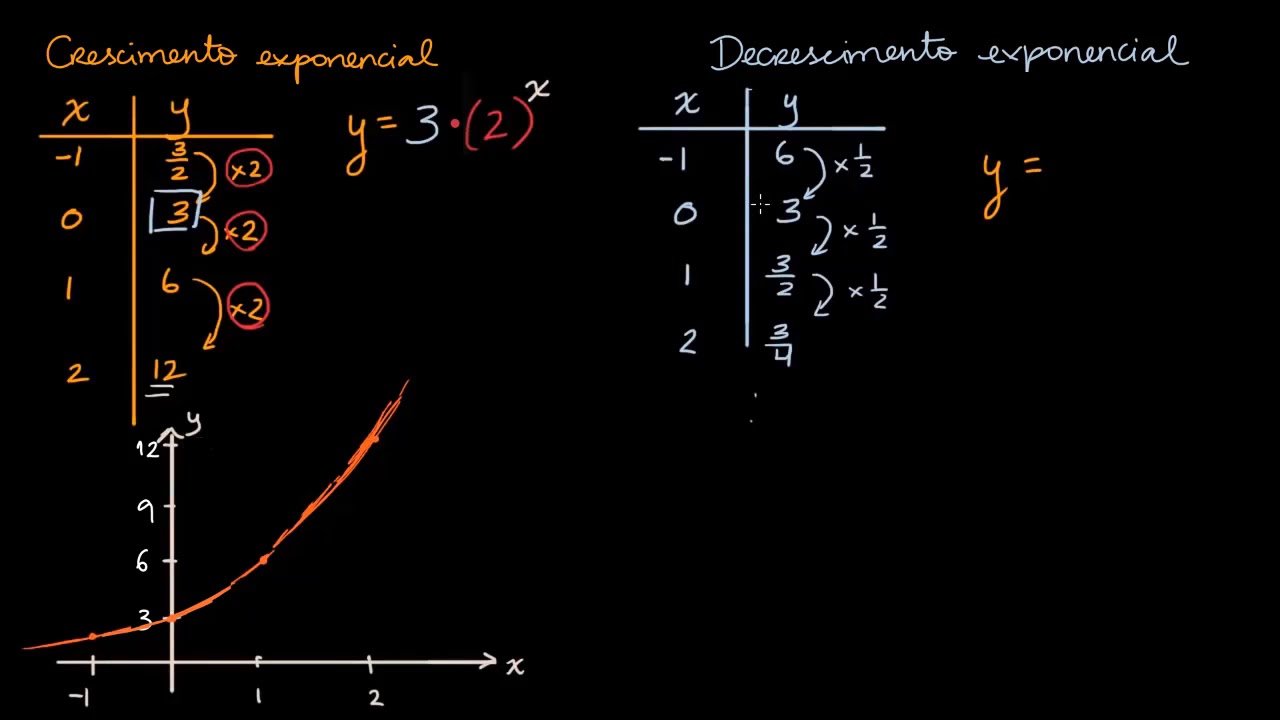 Crescimento exponencial
x y
-1 3/2 ×2
0 3 ×2
1 6 ×2
2 12
y = 3 · (2)^x
y
12
9
6
3
-1 1 2 x
Decrescimento exponencial
x y
-1 6 × 1/2
0 3 × 1/2
1 3/2 × 1/2
2 3/4
y =